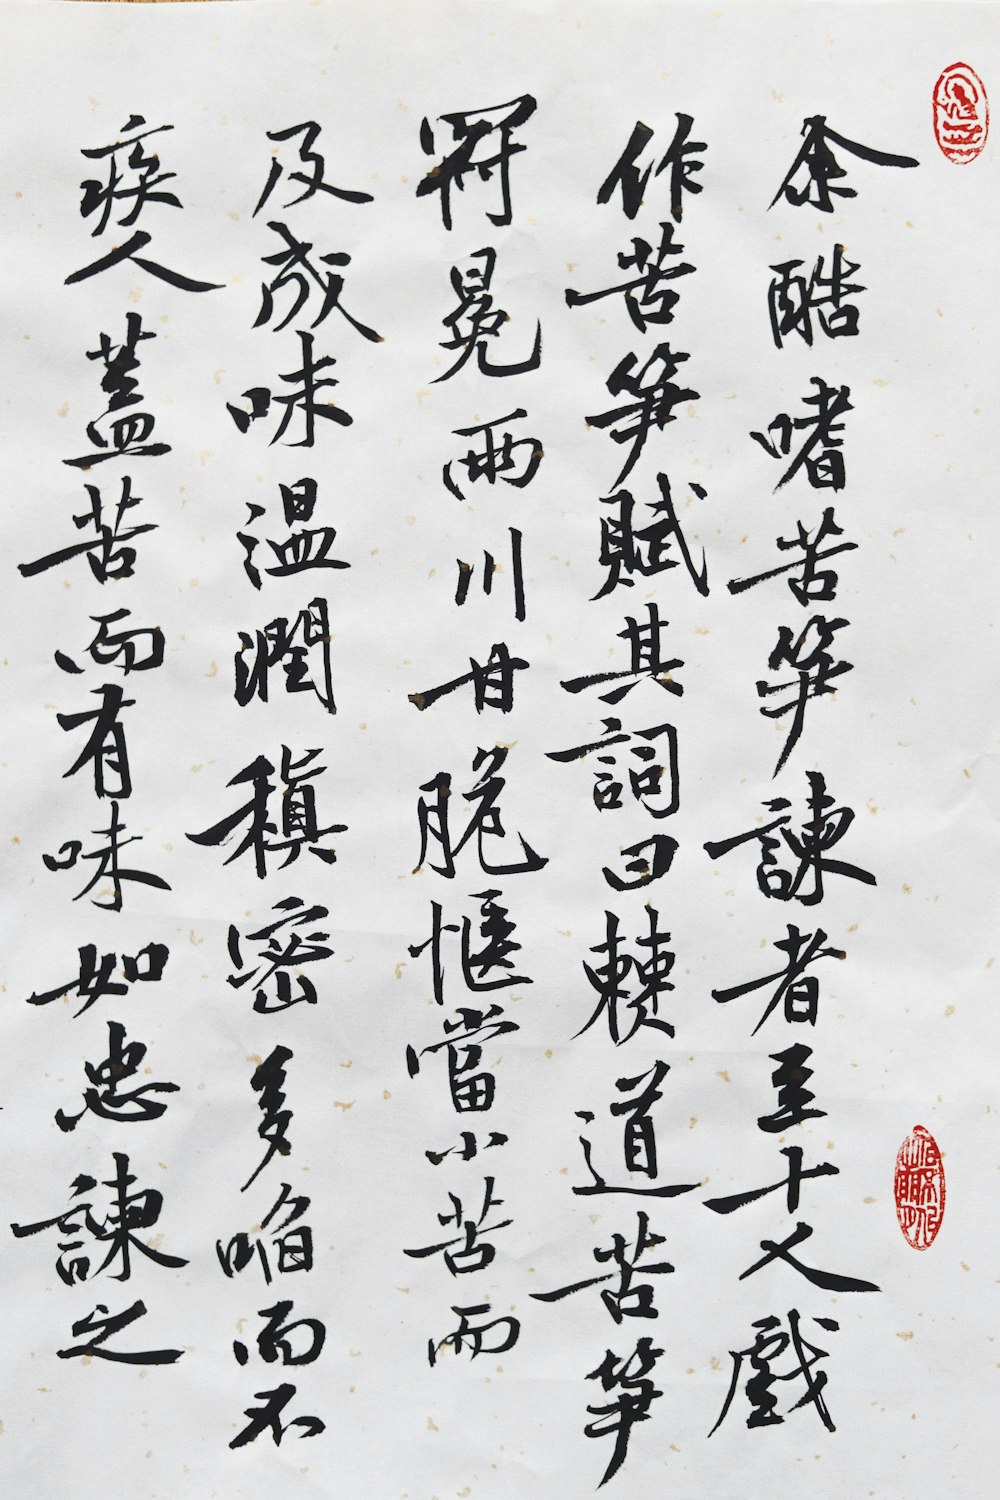 余酷嗜苦笋諫者至十人戲
作苦笋賦其詞曰僰道苦笋
冠冕兩川甘脆愜當小苦而
及成味溫潤稹密多啗而不
疾人蓋苦而有味如忠諫之